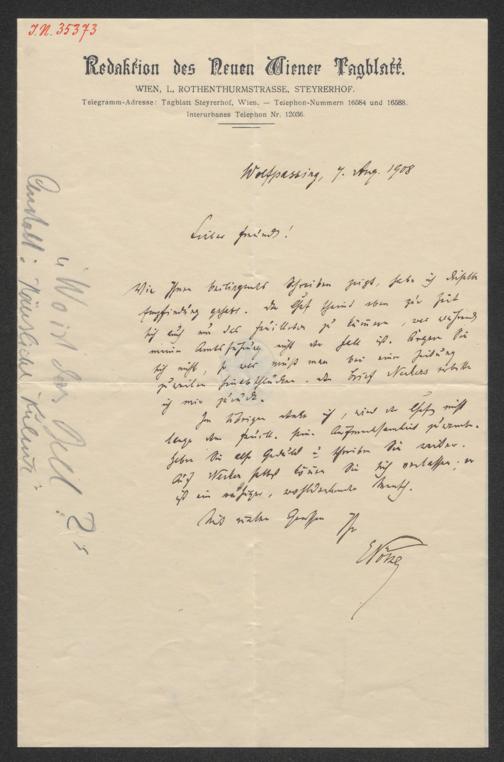 J.N. 35373
Redaktion des Neuen Wiener Tagblatt.
WIEN, I., ROTHENTHURMSTRASSE, STEYRERHOF.
Telegramm-Adresse: Tagblatt Steyrerhof, Wien. — Telephon-Nummern 16584 und 16588.
Interurbanes Telephon Nr. 12036.
Wolfpassing, 7. Aug. 1908
Lieber Freund!
Wie Ihnen beiliegendes Schreiben zeigt, habe ich dieselbe
Empfindung gehabt. Der Chef scheint eben zur Zeit
sich auch um das Feuilleton zu kümmern, was während
meiner Amtsführung nicht der Fall ist. Ärgern Sie
sich nicht, so was muß man bei einer Zeitung
zuweilen hinunterschlucken. Den Brief Neckers erbitte
ich mir zurück.
Im Übrigen glaube ich, wird der Chef nicht
lange dem Feuill. seine Aufmerksamkeit zuwenden.
Haben Sie also Geduld u schreiben Sie weiter.
Auf Necker selbst können Sie sich verlassen; er
ist ein ruhiger, wohldenkender Mensch.
Mit vielen Grüßen Ihr
"Wo ist der
Anstatt: